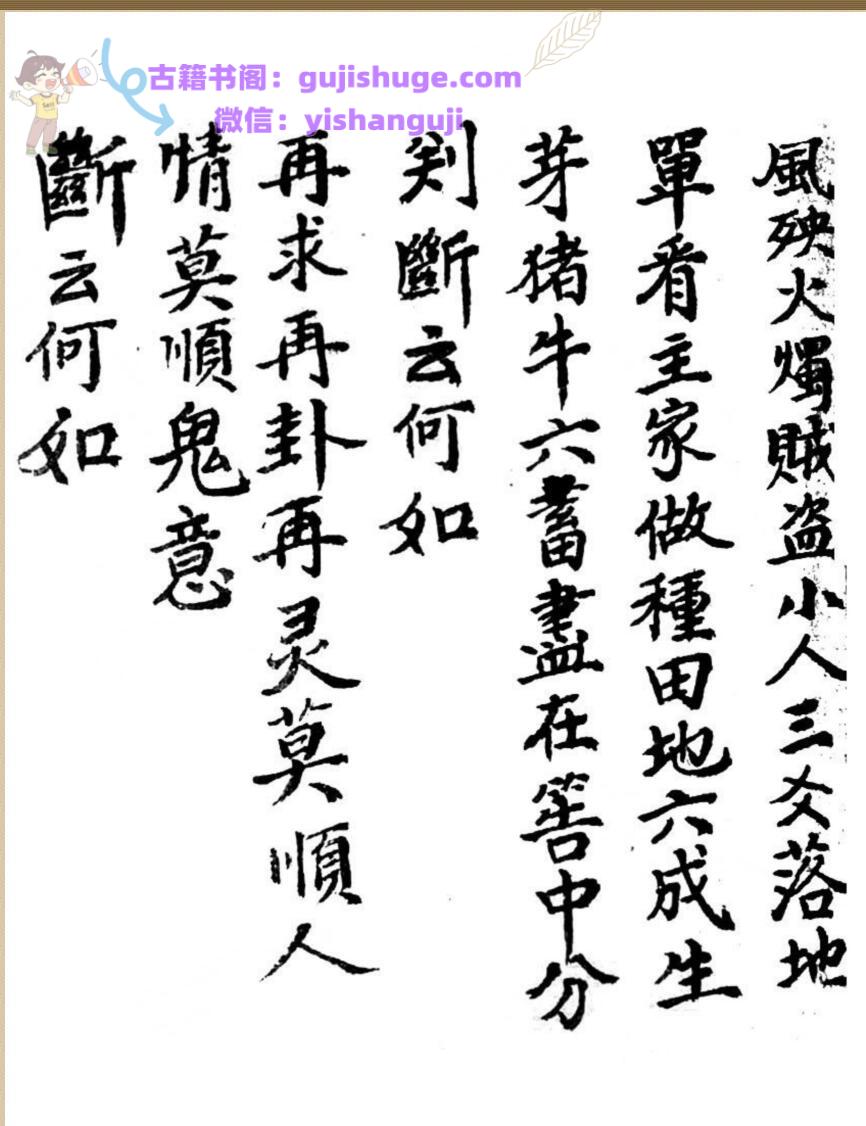 古籍书阁：gujishuge.com
微信：yishanguji
風殃火燭賊盗小人三爻落地
單看主家做種田地六成生
芽猪牛六畜盡在筶中分
判斷云何如
再求再卦再灵莫順人
情莫順鬼意
斷云何如